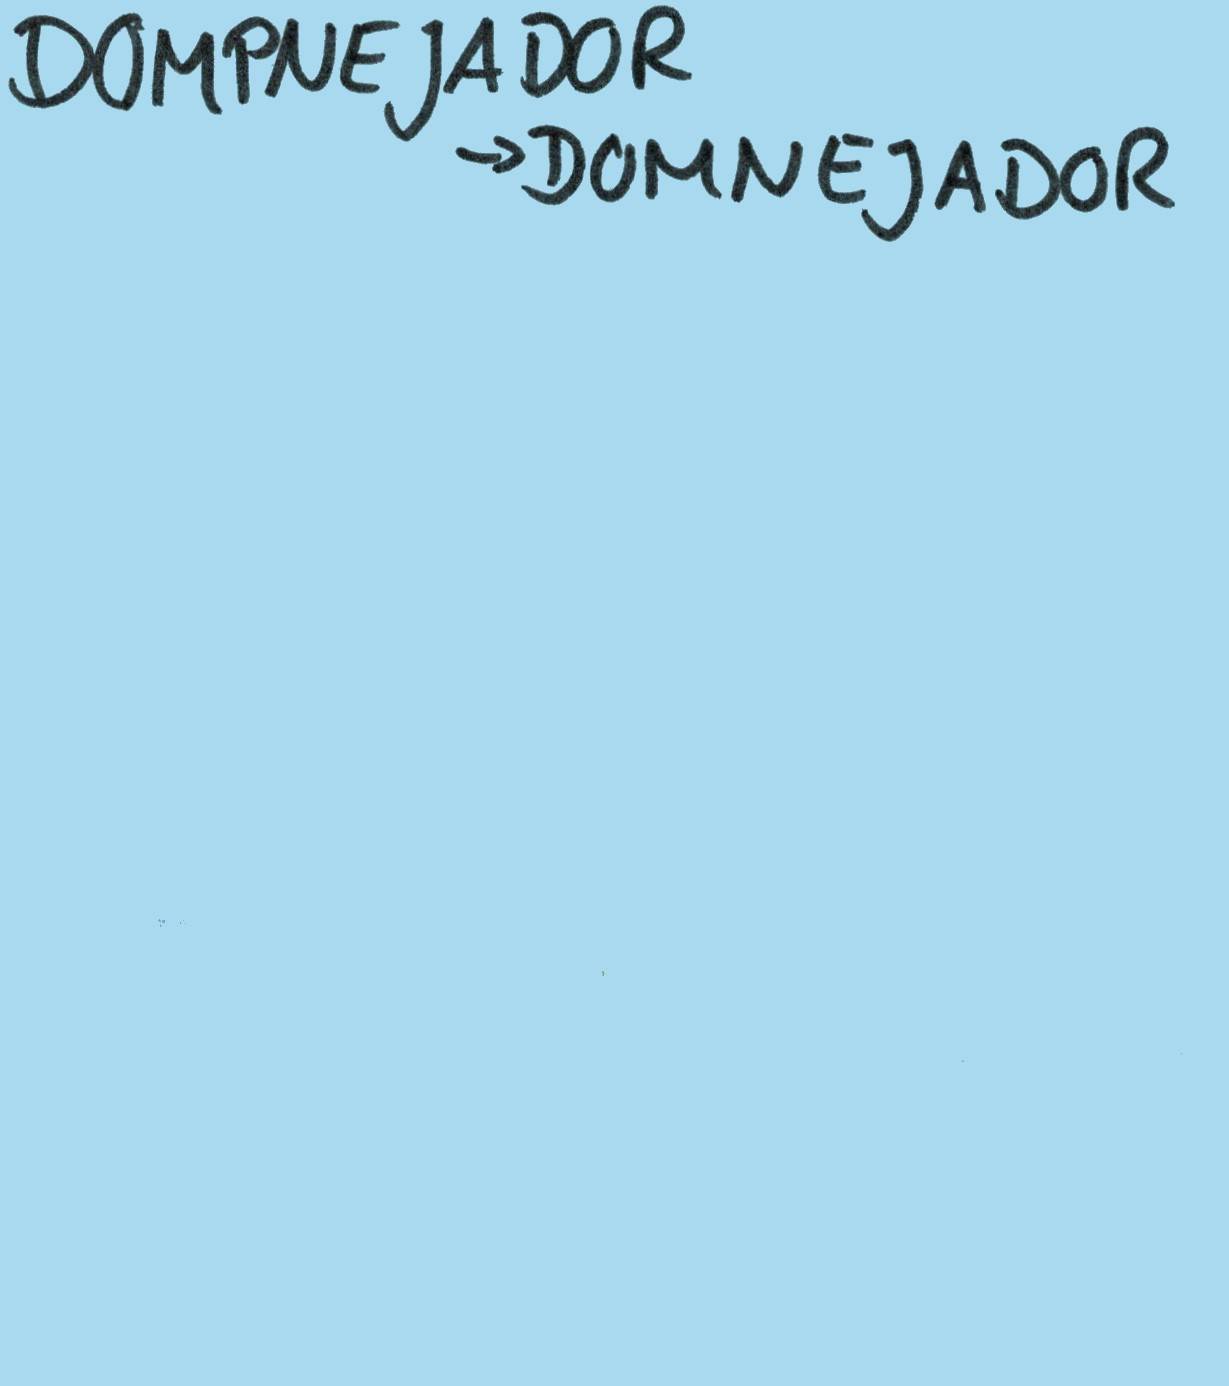 DOMPNEJADOR
→DOMNEJADOR